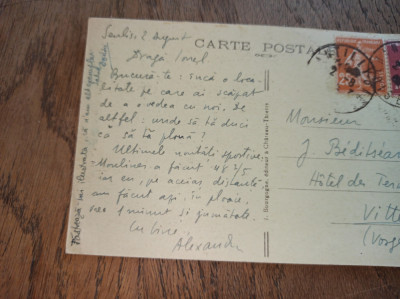 Senlis, 2 August
Dragă Ionel
Bucură-te: încă o loca-
litate pe care ai scăpat
de a o vedea cu noi. De
altfel: unde să te duci
că să tă plouă?
Ultimele noutăți sportive:
Moulines a făcut 48 2/5
iar eu, pe aceiași distanță
am făcut azi, în ploaie,
1 minut și jumătate.
Cu bine,
Alexandr
CARTE POSTA
J. Bourgogne, éditeur à Château-Thierry
Monsieur
J. Béditséan
Hôtel des
Vitte
(Vosg